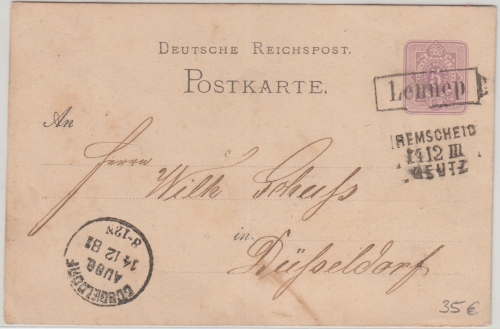 DEUTSCHE REICHSPOST.
POSTKARTE.
5
Lennep
REMSCHEID
14 12 III
DEUTZ
An
Herrn Wilh Schuss
in
Düsseldorf
DÜSSELDORF
AUSG.
14 12 82
8-12N
35 €